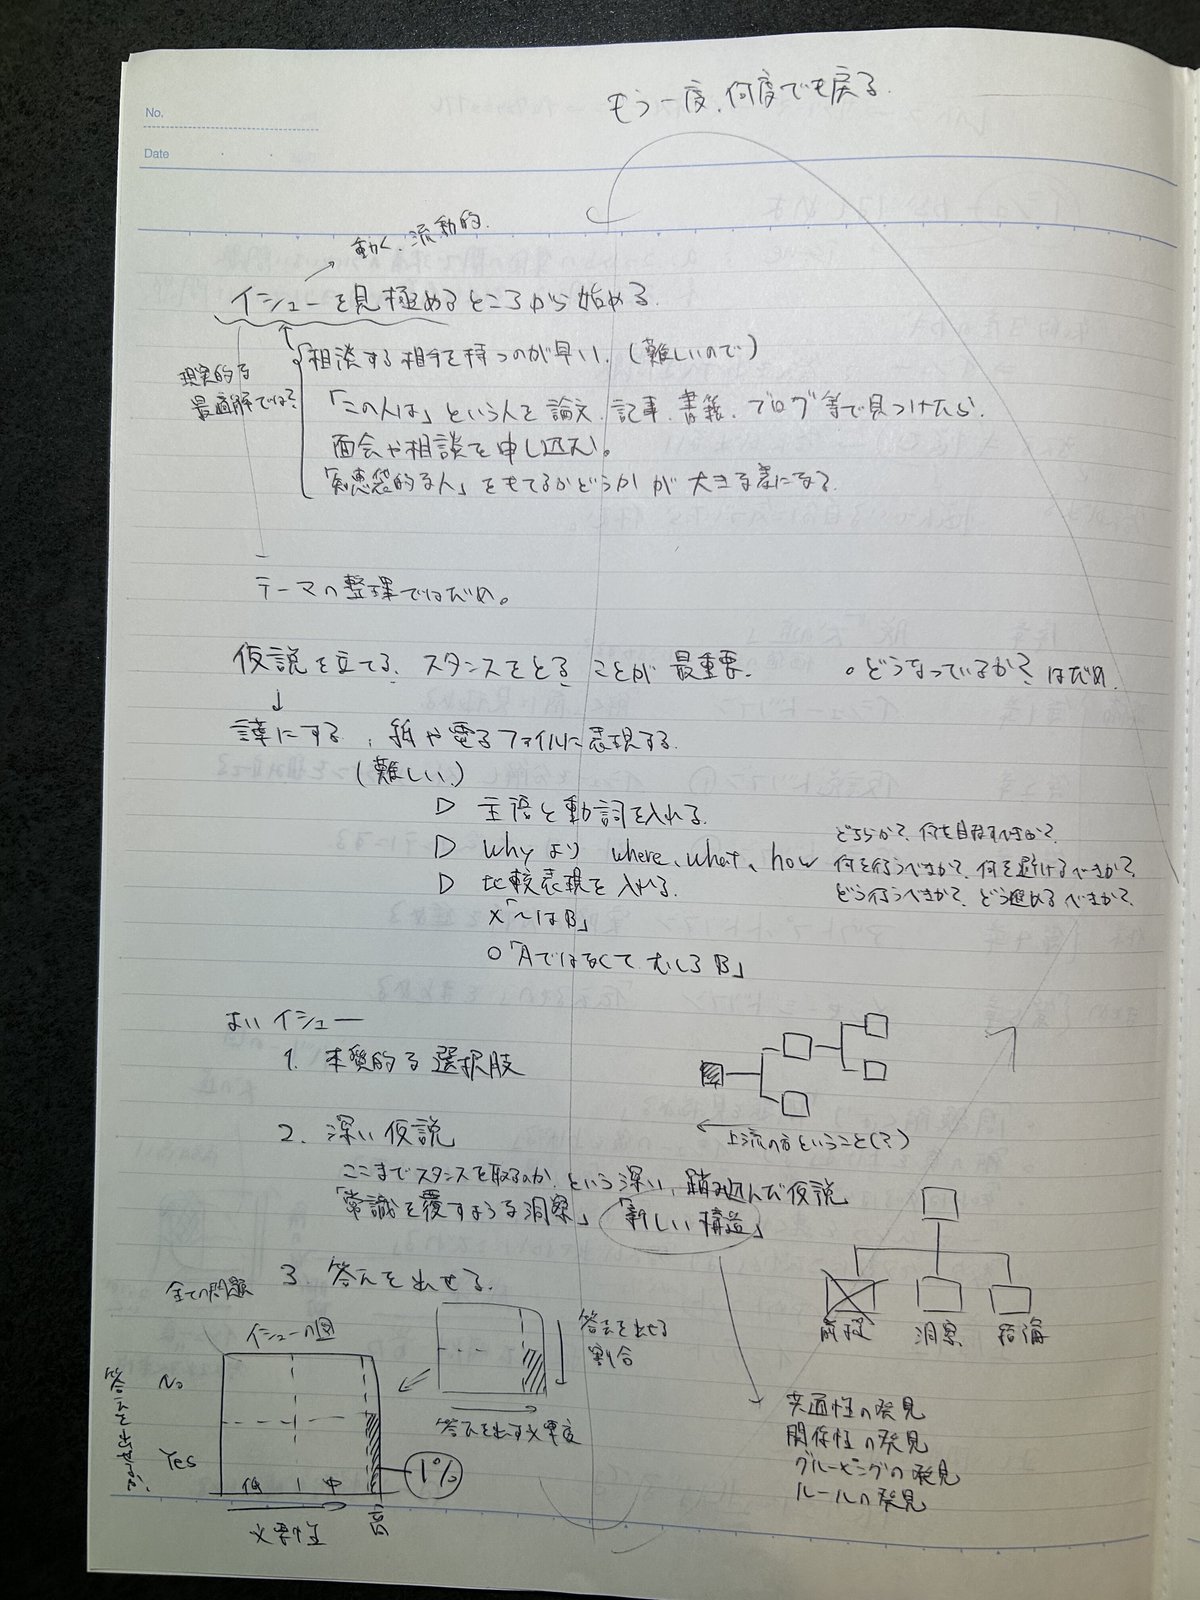 もう一度、何度でも戻る
No.
Date
動く、流動的
イシューを見極めるところから始める
相談する相手を持つのが早い、(難しいので)
現実的な
最適解では?
「この人は」という人を論文、記事、書籍、ブログ等で見つけたら、
面会や相談を申し込む。
「知恵袋的な人」をもてるかどうかが大きな差になる
テーマの整理ではだめ。
仮説を立てる、スタンスをとることが最重要。
。どうなっているか?はだめ
↓
言葉にする、紙や電子ファイルに表現する
(難しい)
▷ 主語と動詞を入れる
▷ whyより where、what、how
どちらか?、何を目指すべきか?
何を行うべきか?、何を避けるべきか?
どう行うべきか?、どう進めるべきか?
▷ 比較表現を入れる
×「〜はB」
○「Aではなくて、むしろB」
よいイシュー
1. 本質的な選択肢
上流の方ということ(?)
2. 深い仮説
ここまでスタンスを取るのか、という深い、踏み込んだ仮説
「常識を覆すような洞察」「新しい構造」
前提
洞察
結論
3. 答えを出せる
全ての問題
イシューの図
答えを出せる
割合
答えを出す必要度
答えを出せるか?
No
Yes
低
中
高
1%
必要性
共通性の発見
関係性の発見
グルーピングの発見
ルールの発見